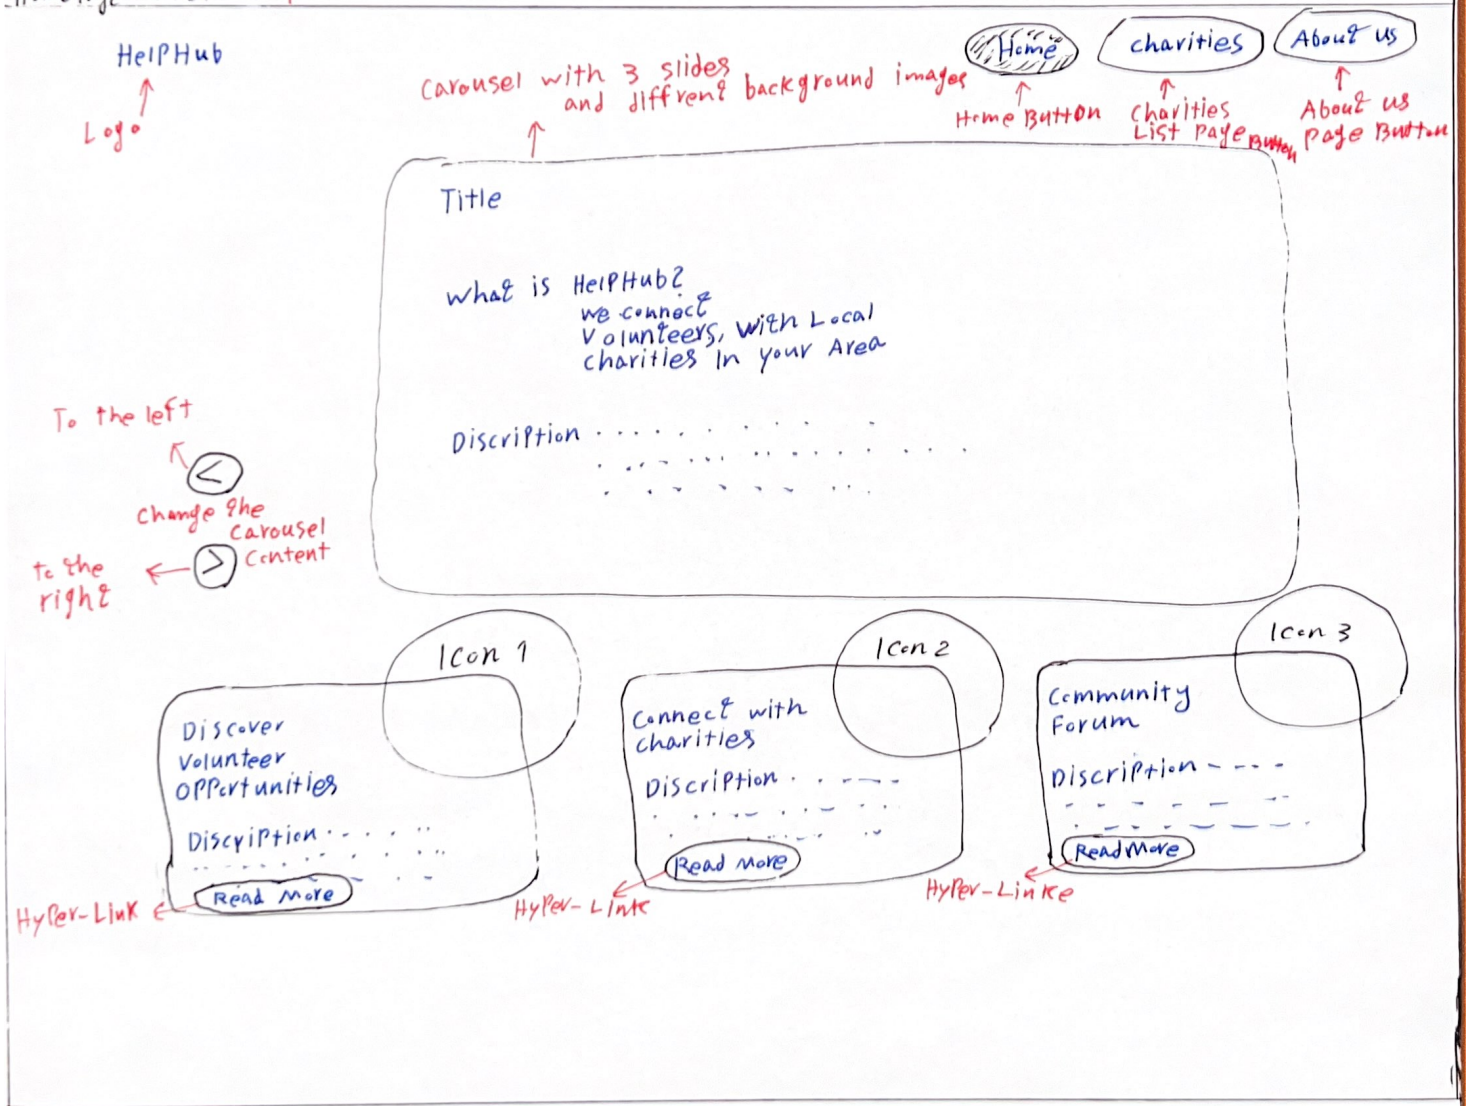 HelpHub
Home
charities
About us
Logo
Carousel with 3 slides
and diffrent background images
Home Button
Charities
List page Button
About us
page Button
Title
What is HelpHub?
we connect
Volunteers, with Local
charities in your Area
Discription
To the left
<
change the
carousel
content
>
to the
right
Icon 1
Icon 2
Icon 3
Discover
Volunteer
opportunities
Discription
Read More
Hyper-Link
Connect with
charities
Discription
Read More
Hyper-Link
Community
Forum
Discription
Read More
Hyper-Linke